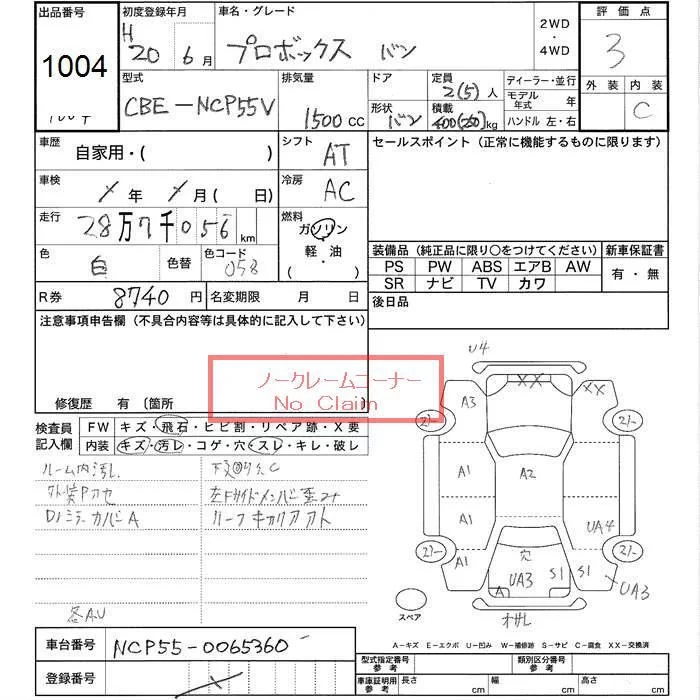 出品番号
1004
初度登録年月
H
20 6月
車名・グレード
プロボックス バン
2WD
・
4WD
評価点
3
外装 内装
C
型式
CBE-NCP55V
排気量
1500 CC
ドア
形状
バン
定員
2(5)人
積載
kg
ディーラー・並行
モデル年式 年
ハンドル 左・右
車歴
自家用・( )
シフト
AT
車検
年 月( 日)
冷房
AC
走行
28万7千056 km
燃料
ガソリン
軽・油
・( )
色
白
色替
色コード
058
R券
8740円
名変期限 月 日
セールスポイント(正常に機能するものに限ります)
装備品(純正品に限り○をつけてください)
PS PW ABS エアB AW
SR ナビ TV カワ
新車保証書
有・無
後日品
注意事項申告欄(不具合内容等は具体的に記入して下さい)
ノークレームコーナー
No Claim
修復歴 有(箇所
検査員
記入欄
FW キズ・飛石・ヒビ割・リペア跡・X要
内装 キズ・汚レ・コゲ・穴・スレ・キレ・破レ
ルーム内汚レ
D/ミラーカバーA
各A.U
U4
XX
XX
A3
A1
A2
A1
UA4
A1
穴
UA3
A
S1
S1
UA3
スペア
A-キズ E-エクボ U-凹み W-補修跡 S-サビ C-腐食 XX-交換済
車台番号
NCP55-0065360
登録番号
型式指定番号
参考
類別区分番号
参考
車庫証明用
参考
長さ cm
幅 cm
高さ cm